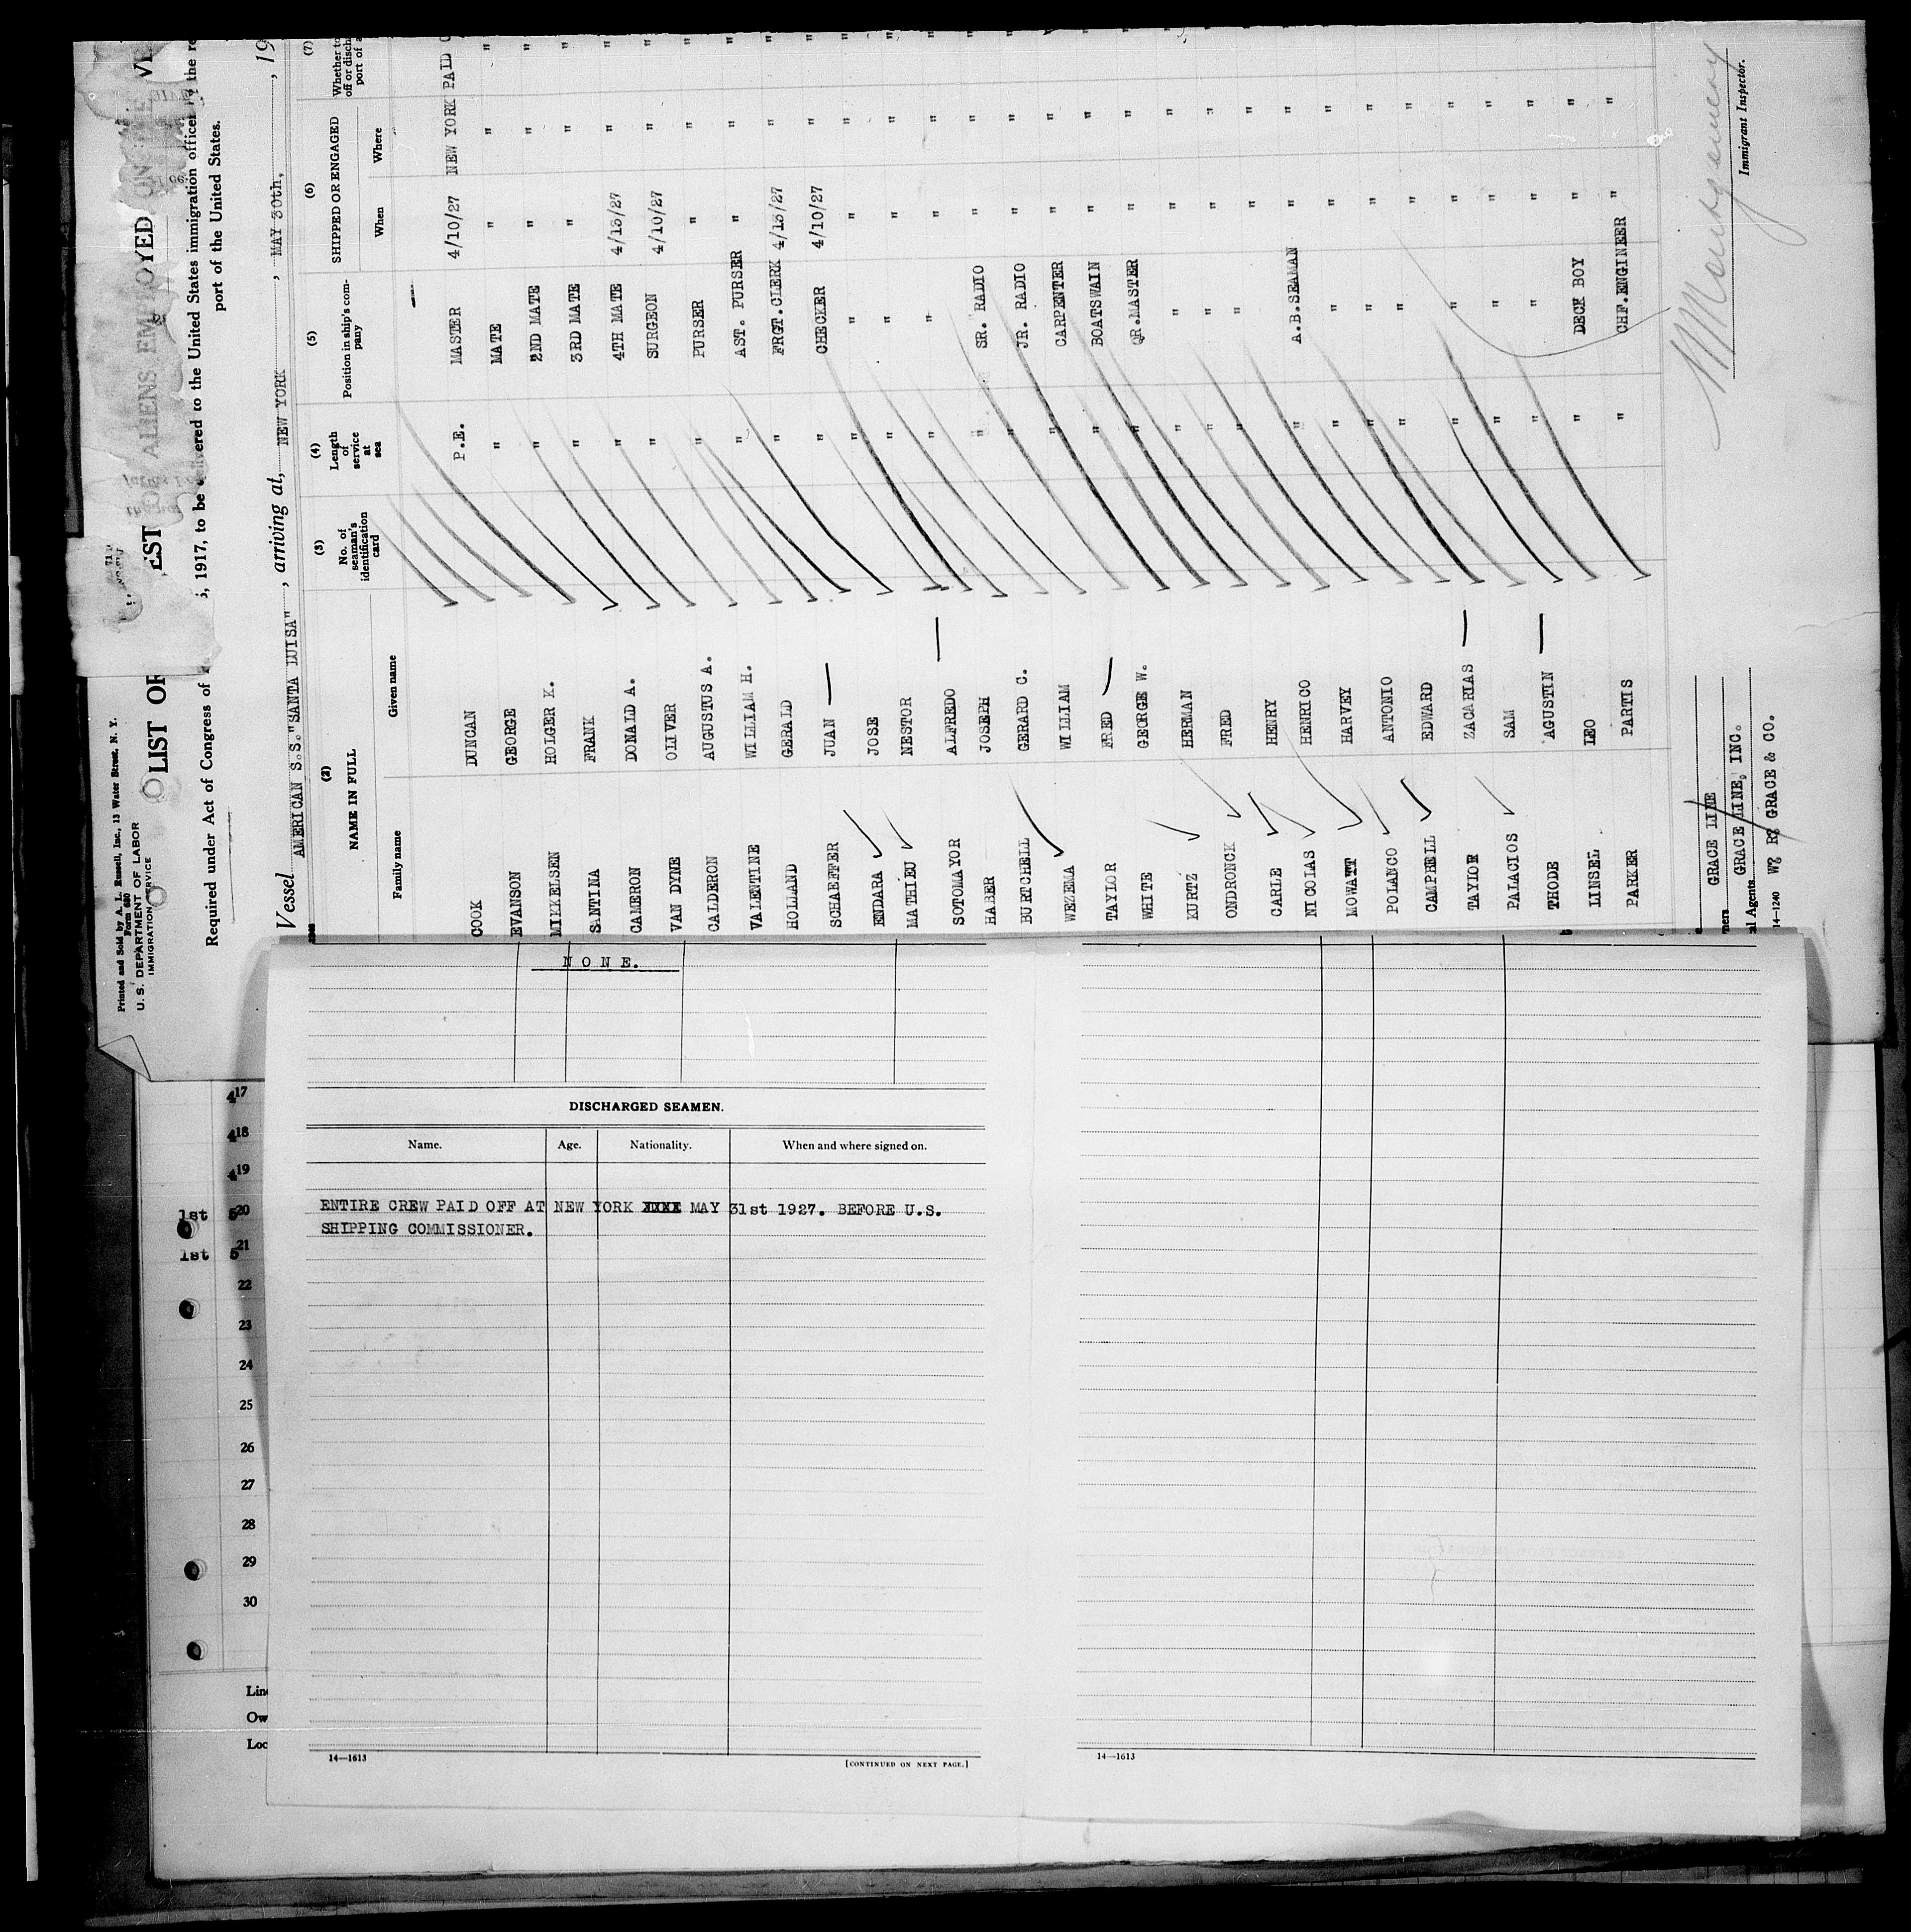 Printed and Sold by A. L. Russell, Inc., 13 Water Street, N. Y.
Form 680
U. S. DEPARTMENT OF LABOR
IMMIGRATION SERVICE
LIST OR EST OF ALIENS EMPLOYED ON THE VE
Required under Act of Congress of , 1917, to be delivered to the United States immigration officer the re
port of the United States.
Vessel AMERICAN S.S."SANTA LUISA" , arriving at, NEW YORK , MAY 30th, , 19
(2) (3) (4) (5) (6) (7)
NAME IN FULL No. of seaman's identification card Length of service at sea Position in ship's company SHIPPED OR ENGAGED Whether to off or disch port of a
Family name Given name When Where
COOK DUNCAN P.E. MASTER 4/10/27 NEW YORK PAID O
EVANSON GEORGE " MATE " " "
MIKKELSEN HOLGER K. " 2ND MATE " " "
SANTINA FRANK " 3RD MATE " " "
CAMERON DONALD A. " 4TH MATE 4/13/27 " "
VAN DYNE OLIVER " SURGEON 4/10/27 " "
CALDERON AUGUSTUS A. " PURSER " " "
VALENTINE WILLIAM H. " AST. PURSER " " "
HOLLAND GERALD " FRGT.CLERK 4/13/27 " "
SCHAEFFER JUAN " CHECKER 4/10/27 " "
ENDARA JOSE " " " " "
MATHIEU NESTOR " " " " "
SOTOMAYOR ALFREDO " " " " "
HABER JOSEPH " SR. RADIO " " "
BURTCHELL GERARD C. " JR. RADIO " " "
WEZEMA WILLIAM " CARPENTER " " "
TAYLOR FRED " BOATSWAIN " " "
WHITE GEORGE W. " QR.MASTER " " "
KURTZ HERMAN " " " " "
ONDRONCK FRED " " " " "
CARLE HENRY " " " " "
NICOLAS HENRICO " A.B.SEAMAN " " "
MOWATT HARVEY " " " " "
POLANCO ANTONIO " " " " "
CAMPBELL EDWARD " " " " "
TAYLOR ZACARIAS " " " " "
PALACIOS SAM " " " " "
THODE AGUSTIN " " " " "
LINSEL LEO " DECK BOY " " "
PARKER PARTIS " CHF.ENGINEER " " "
GRACE LINE
GRACE LINE, INC.
l Agents W. R. GRACE & CO.
14—1240
Montgomery
Immigrant Inspector.
NONE.
DISCHARGED SEAMEN.
Name. Age. Nationality. When and where signed on.
ENTIRE CREW PAID OFF AT NEW YORK XXXX MAY 31st 1927. BEFORE U.S.
SHIPPING COMMISSIONER.
14—1613
[CONTINUED ON NEXT PAGE.]
14—1613
4 17
4 18
4 19
1st 5 20
1st 5 21
22
23
24
25
26
27
28
29
30
Lin
Ow
Loc